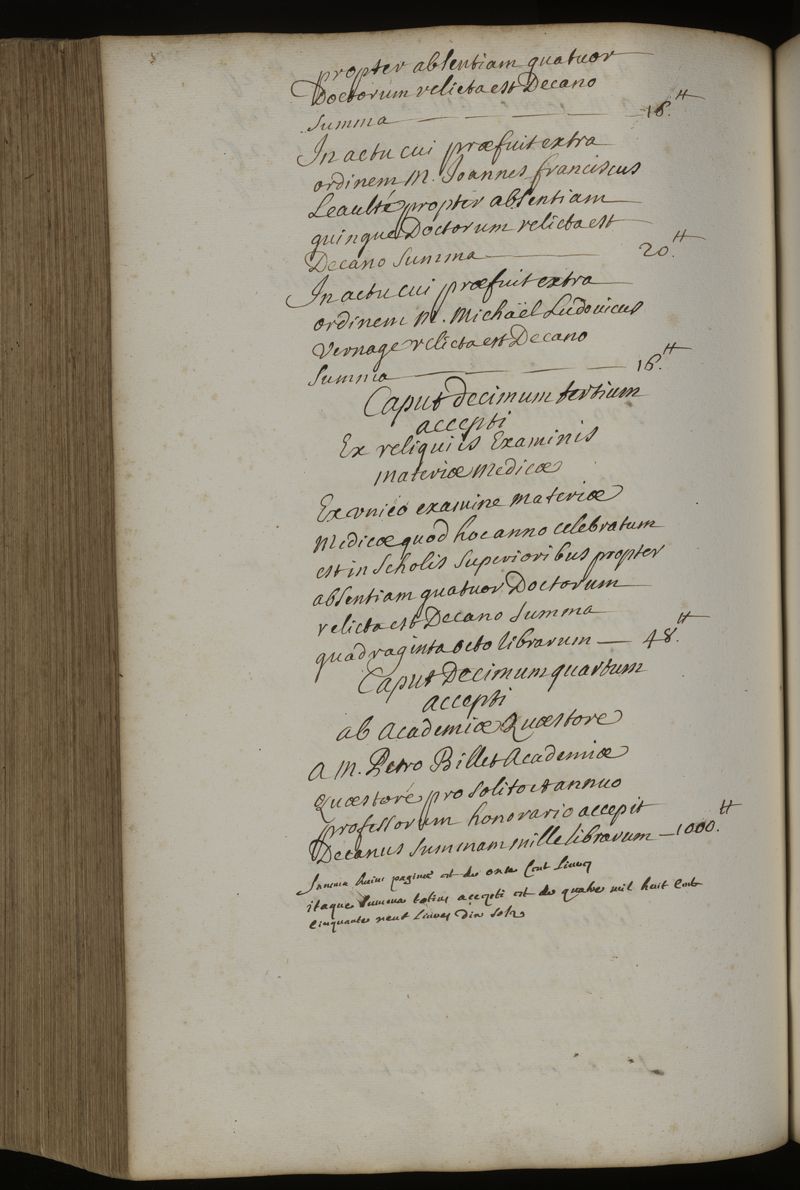 propter absentiam quatuor
Doctorum relicta est Decano
Summa — 16.tt
In actu cui præfuit extra
ordinem M. Joannes franciscus
Leaulté propter absentiam
quinque Doctorum relicta est
Decano Summa — 20.tt
In actu cui præfuit extra
ordinem M. Michaël Ludovicus
Vernage relicta est Decano
Summa — 16.tt
Caput decimum tertium
accepti
Ex reliquiis Examinis
materiæ Medicæ
Ex vnico examine Materiæ
Medicæ quod hoc anno celebratum
est in Scholis Superioribus propter
absentiam quatuor Doctorum
relicta est Decano Summa
quadraginta octo librarum — 48.tt
Caput Decimum quartum
accepti
ab Academiæ Quæstore
A M. Petro Billet Academiæ
Quæstore pro solito et annuo
professorum honorario accepit
Decanus Summam mille librarum — 1000.tt
Summa huius paginæ est de onze Cent Livres
itaque Summa totius accepti est de quatre mil huit Cents
Cinquante neuf Livres dix sols